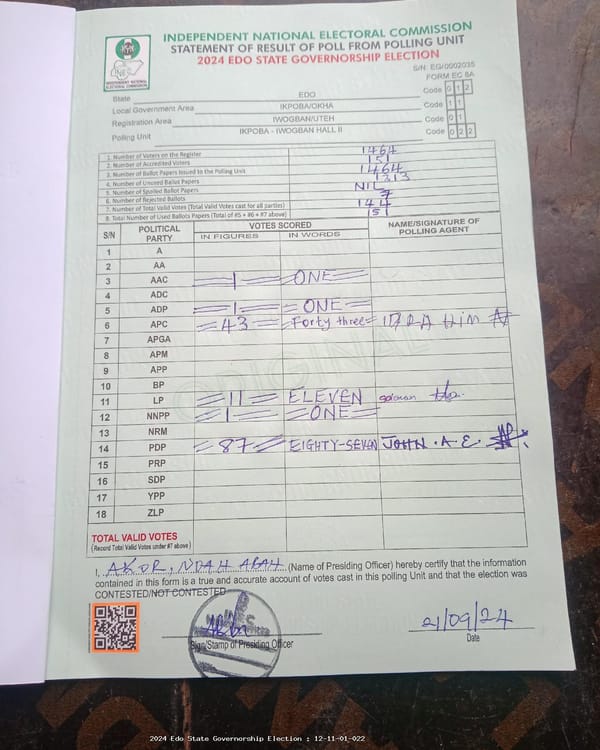 INDEPENDENT NATIONAL ELECTORAL COMMISSION
STATEMENT OF RESULT OF POLL FROM POLLING UNIT
2024 EDO STATE GOVERNORSHIP ELECTION
S/N: EG/0002035
FORM EC 8A
INEC
INDEPENDENT NATIONAL ELECTORAL COMMISSION
State EDO Code 0 1 2
Local Government Area IKPOBA/OKHA Code 1 1
Registration Area IWOGBAN/UTEH Code 0 1
Polling Unit IKPOBA - IWOGBAN HALL II Code 0 2 2
1. Number of Voters on the Register 1464
2. Number of Accredited Voters 151
3. Number of Ballot Papers Issued to the Polling Unit 1464
4. Number of Unused Ballot Papers 1313
5. Number of Spoiled Ballot Papers NIL
6. Number of Rejected Ballots 7
7. Number of Total Valid Votes (Total Valid Votes cast for all parties) 144
8. Total Number of Used Ballots Papers (Total of #5 + #6 + #7 above) 151
S/N POLITICAL PARTY VOTES SCORED NAME/SIGNATURE OF POLLING AGENT
IN FIGURES IN WORDS
1 A
2 AA
3 AAC 1 ONE
4 ADC
5 ADP 1 ONE
6 APC 43 Forty three
7 APGA
8 APM
9 APP
10 BP
11 LP 11 ELEVEN
12 NNPP 1 ONE
13 NRM
14 PDP 87 EIGHTY-SEVEN JOHN . A. E.
15 PRP
16 SDP
17 YPP
18 ZLP
ORIGINAL
TOTAL VALID VOTES
(Record Total Valid Votes under #7 above)
I, AKOR, NDAH ABAH (Name of Presiding Officer) hereby certify that the information
contained in this form is a true and accurate account of votes cast in this polling Unit and that the election was
CONTESTED/NOT CONTESTED
Sign/Stamp of Presiding Officer
21/09/24
Date
2024 Edo State Governorship Election : 12-11-01-022